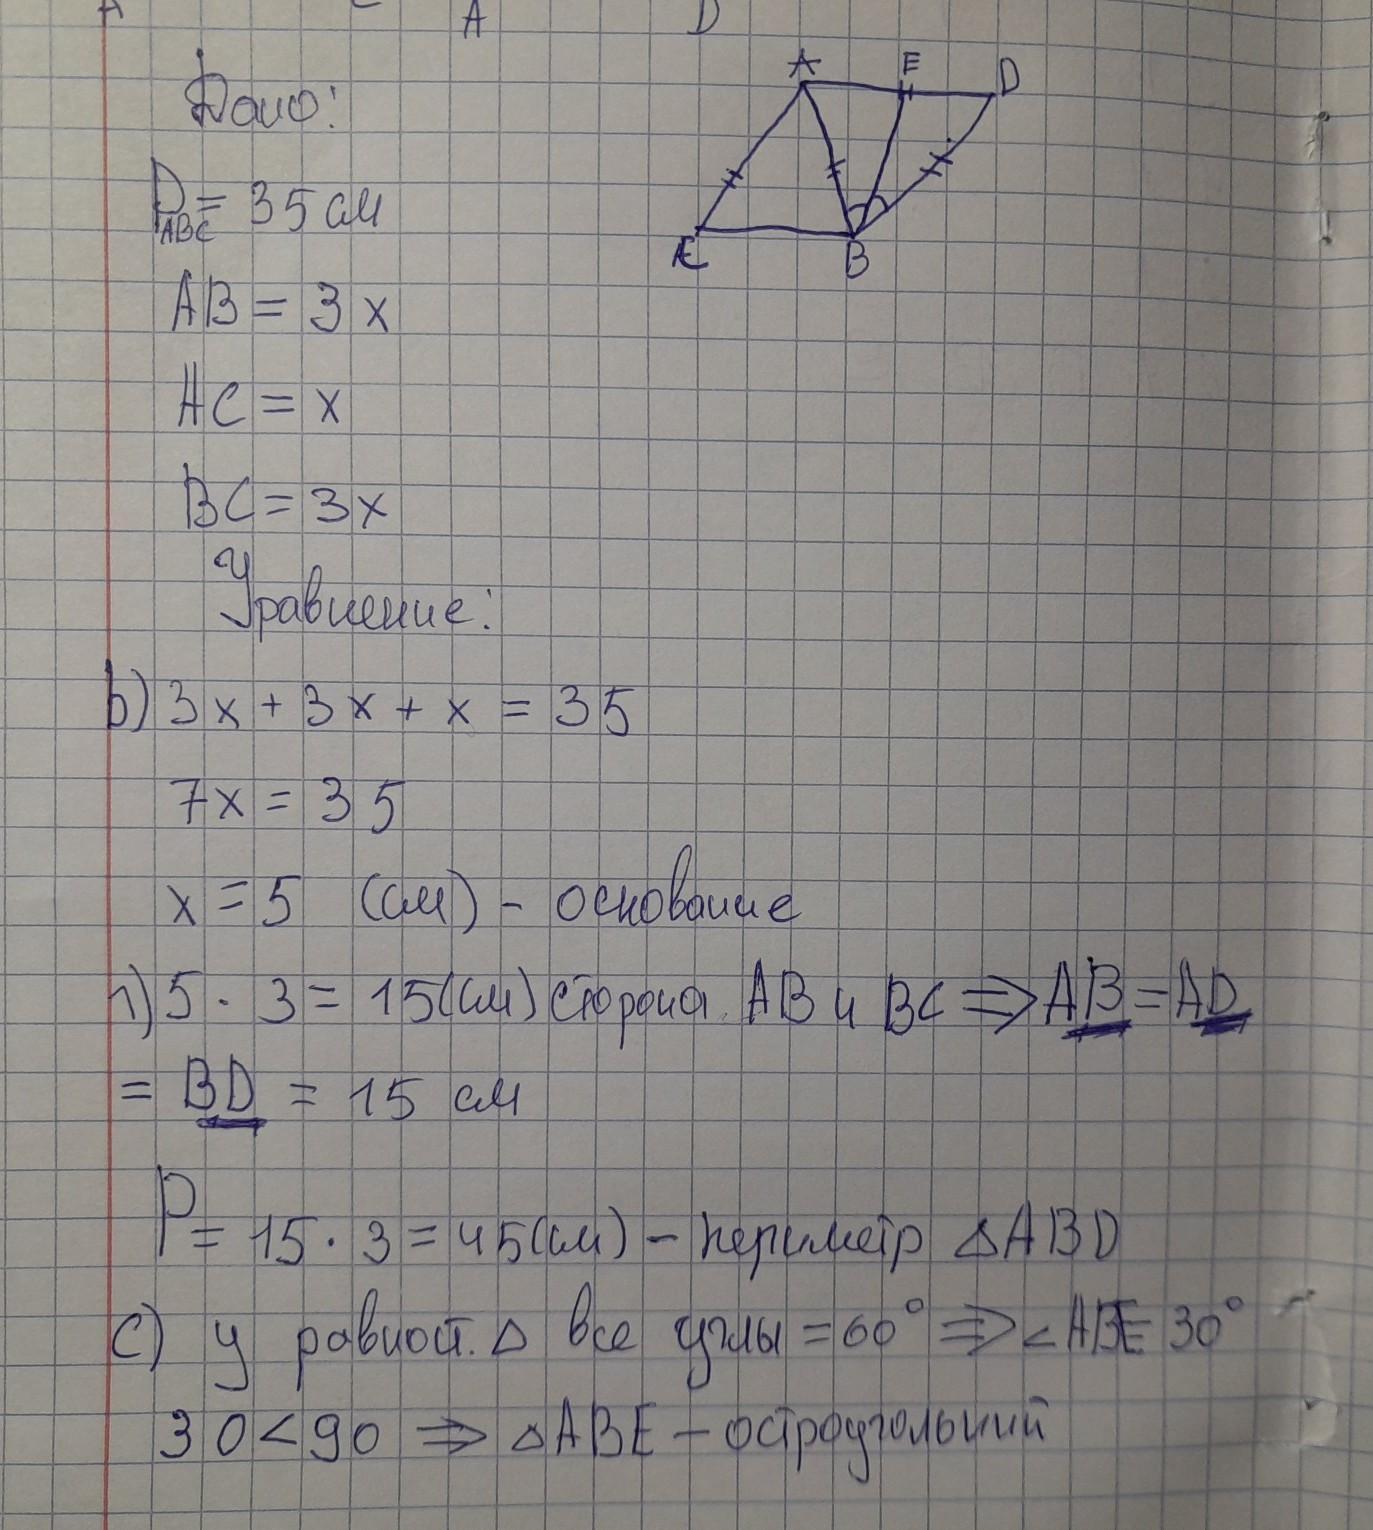 A D
Дано:
A E D
P_ABC = 35 см
C B
AB = 3x
AC = x
BC = 3x
Уравнение:
b) 3x + 3x + x = 35
7x = 35
x = 5 (см) - основание
1) 5 · 3 = 15(см) сторона AB и BC ⇒ AB = AD
= BD = 15 см
P = 15 · 3 = 45(см) - периметр △ABD
c) у равност. △ все углы = 60° ⇒ ∠ABE = 30°
30 < 90 ⇒ △ABE - остроугольний